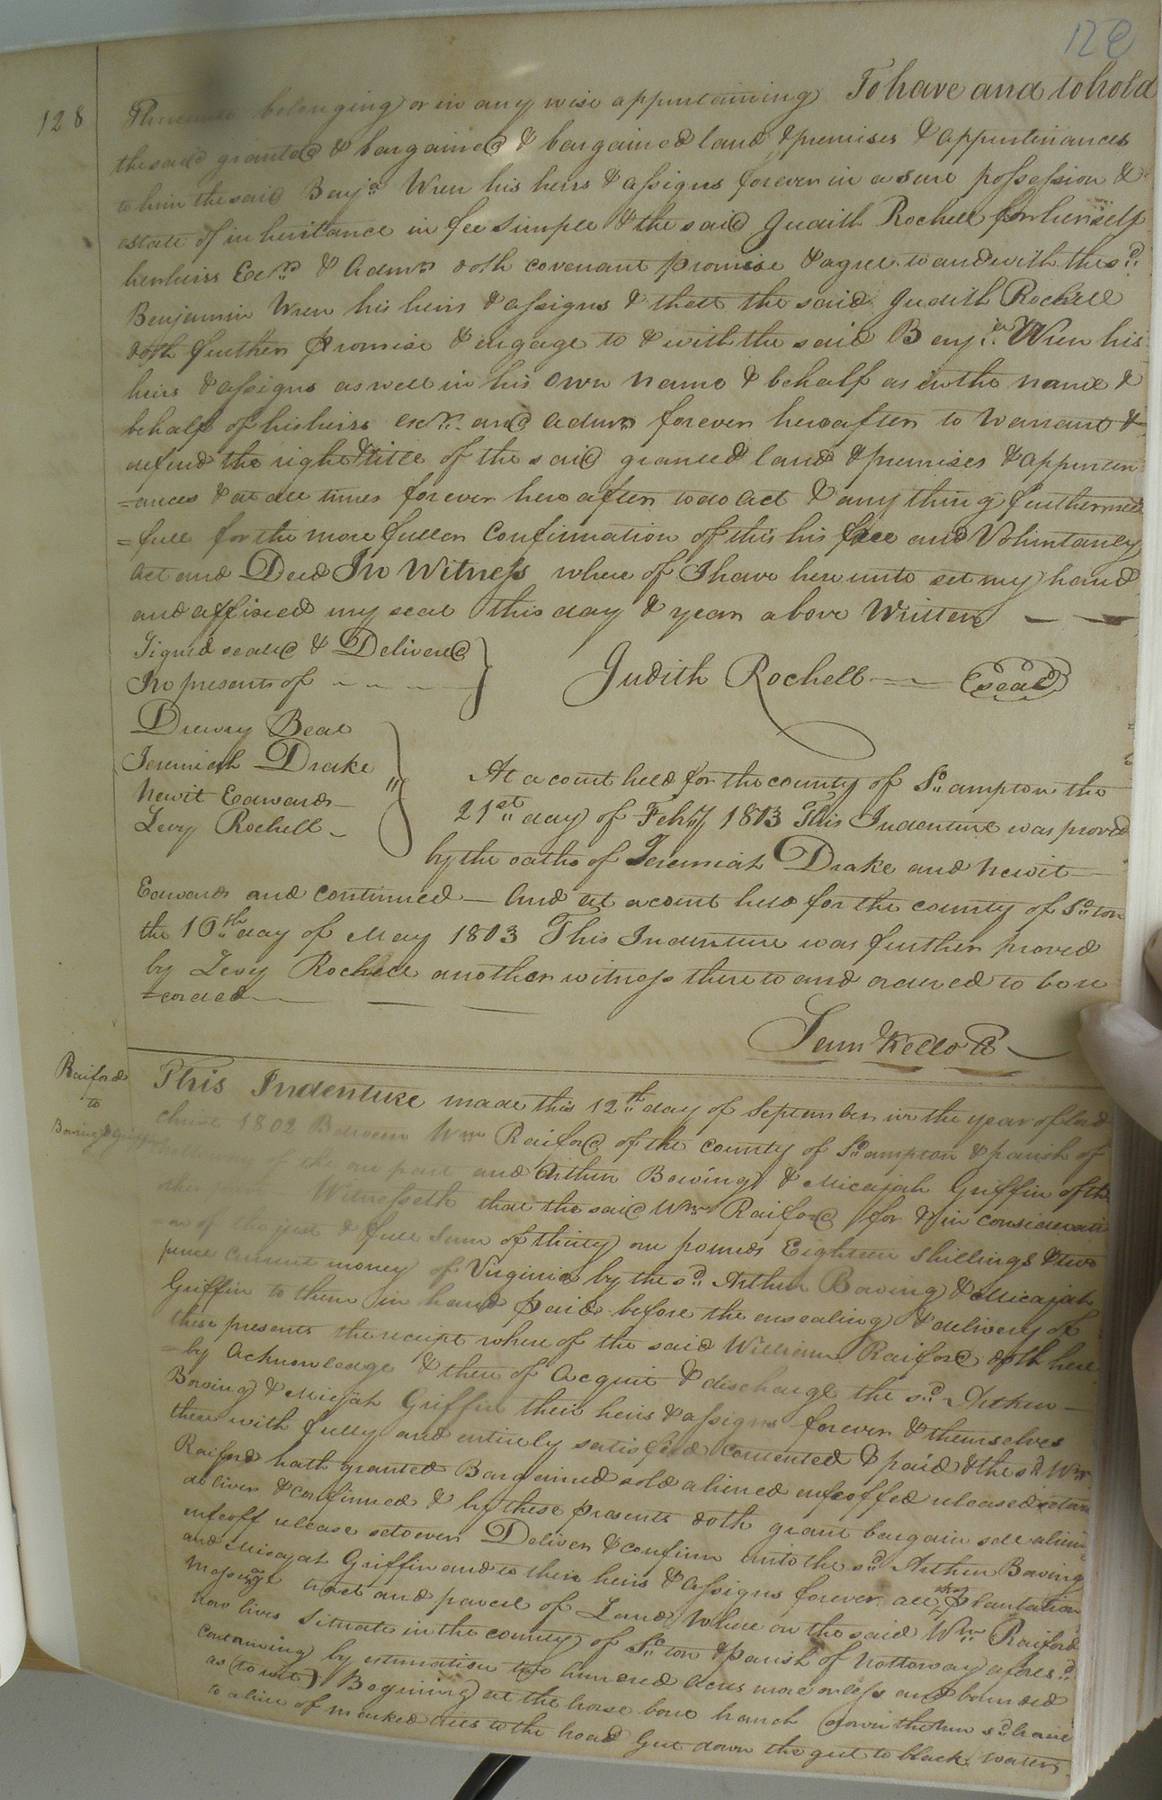 128
128
Thereunto belonging or in any wise appurtaining To have and to hold
the said granted & bargained & bargained land & premises & appurtinances
to him the said Benja Wren his heirs & assigns forever in a sure possession &
estate of inheritance in fee simple & the said Judith Rochell for herself
her heirs Exrs & Admrs doth covenant promise & agree to and with the sd
Benjamin Wren his heirs & assigns & that the said Judith Rochell
doth further promise & engage to & with the said Benjn Wren his
heirs & assigns as well in his own name & behalf as in the name &
behalf of his heirs exrs and admrs forever hereafter to Warrant &
defend the right & title of the said granted land & premises & appurten
=ances & at all times forever hereafter to do act & any thing further need
=full for the more fuller Confirmation of this his free and Voluntary
Act and Deed In Witness where of I have here unto set my hand
and affixed my seal this day & year above Written
Signd seald & Delivered
In presents of
Judith Rochell (seal)
Drewry Beal
Jeremiah Drake
Newit Edwards
Levy Rochell
At a court held for the county of So ampton the
21st day of Feby 1803 This Indenture was proved
by the oaths of Jeremiah Drake and Newit
Edwards and continued And at a court held for the county of So ton
the 16th day of May 1803 This Indenture was further proved
by Levy Rochell another witness there to and ordered to be re
=corded
Saml Kello C
Raiford
to
Bowing & Griffin
This Indenture made this 12th day of September in the year of lord
christ 1802 Between Wm Raiford of the county of So ampton & parish of
of the one part and Arthur Bowing & Micajah Griffin of the
other Witnesseth that the said Wm Raiford for & in considerati
=on of the just & full sum of thirty one pounds Eighteen shillings & two
pence current money of Virginia by the sd Arthur Bowing & Micajah
Griffin to them in hand paid before the ensealing & delivery of
these presents the receipt where of the said William Raiford doth here
=by Acknowledge & there of Acquit & discharge the sd Arthur
Bowing & Micjah Griffin their heirs & assigns forever & themselves
there with fully and entirely satisfied contented & paid & the sd Wm
Raiford hath granted Bargained sold aliened enfeoffed released
deliver & confirmed & by these presents doth grant bargain sell alien
enfeoff release setover Deliver & confirm unto the sd Arthur Bowing
and Micajah Griffin and to their heirs & assigns forever all that plantation
Messuage tract and parcel of Land Where on the said Wm Raiford
now lives Situate in the county of So ton & parish of Nottoway aforesd
Containing by estimation two hundred acres more or less and bounded
as (to wit) Begining at the horse bone branch down the sd
to a line of marked trees to the head Gut down the gut to black water